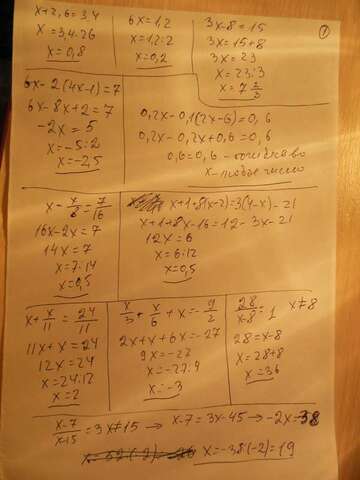 x+2,6=3,4
x=3,4-2,6
x=0,8
6x=1,2
x=1,2:2
x=0,2
3x-8=15
3x=15+8
3x=23
x=23:3
x=7 2/3
1
6x-2(4x-1)=7
6x-8x+2=7
-2x=5
x=-5:2
x=-2,5
0,2x-0,1(2x-6)=0,6
0,2x-0,2x+0,6=0,6
0,6=0,6-
x-любое число
x-x/8=7/16
16x-2x=7
14x=7
x=7:14
x=0,5
x+1+8(x-2)=3(4-x)-21
x+1+8x-16=12-3x-21
12x=6
x=6:12
x=0,5
x+x/11=24/11
11x+x=24
12x=24
x=24:12
x=2
x/3+x/6+x=-9/2
2x+x+6x=-27
9x=-27
x=-27:9
x=-3
28/x-8=1 x≠8
28=x-8
x=28+8
x=36
x-7/x-15=3 x≠15 → x-7=3x-45 → -2x=-38
x=-38(-2)=19